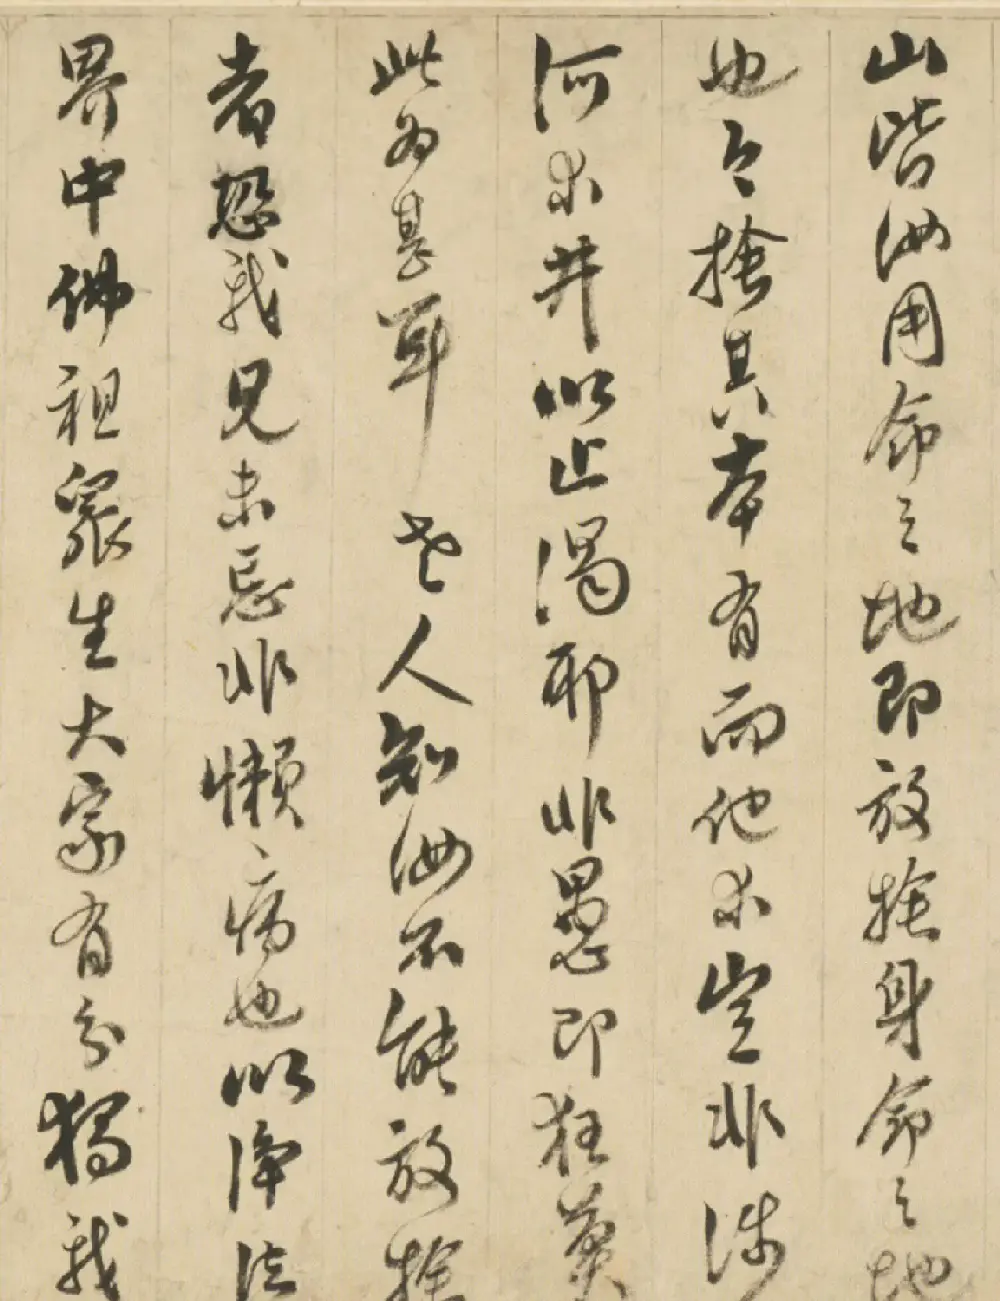 山皆汝用命之地即放捨身命之地
也今捨其本有而他求豈非涉
河求井以止渴耶非愚即狂莫
此为甚耳老人知汝不能放捨
者恐我見未忘非懶病也以淨法
界中佛祖眾生大家有分獨我